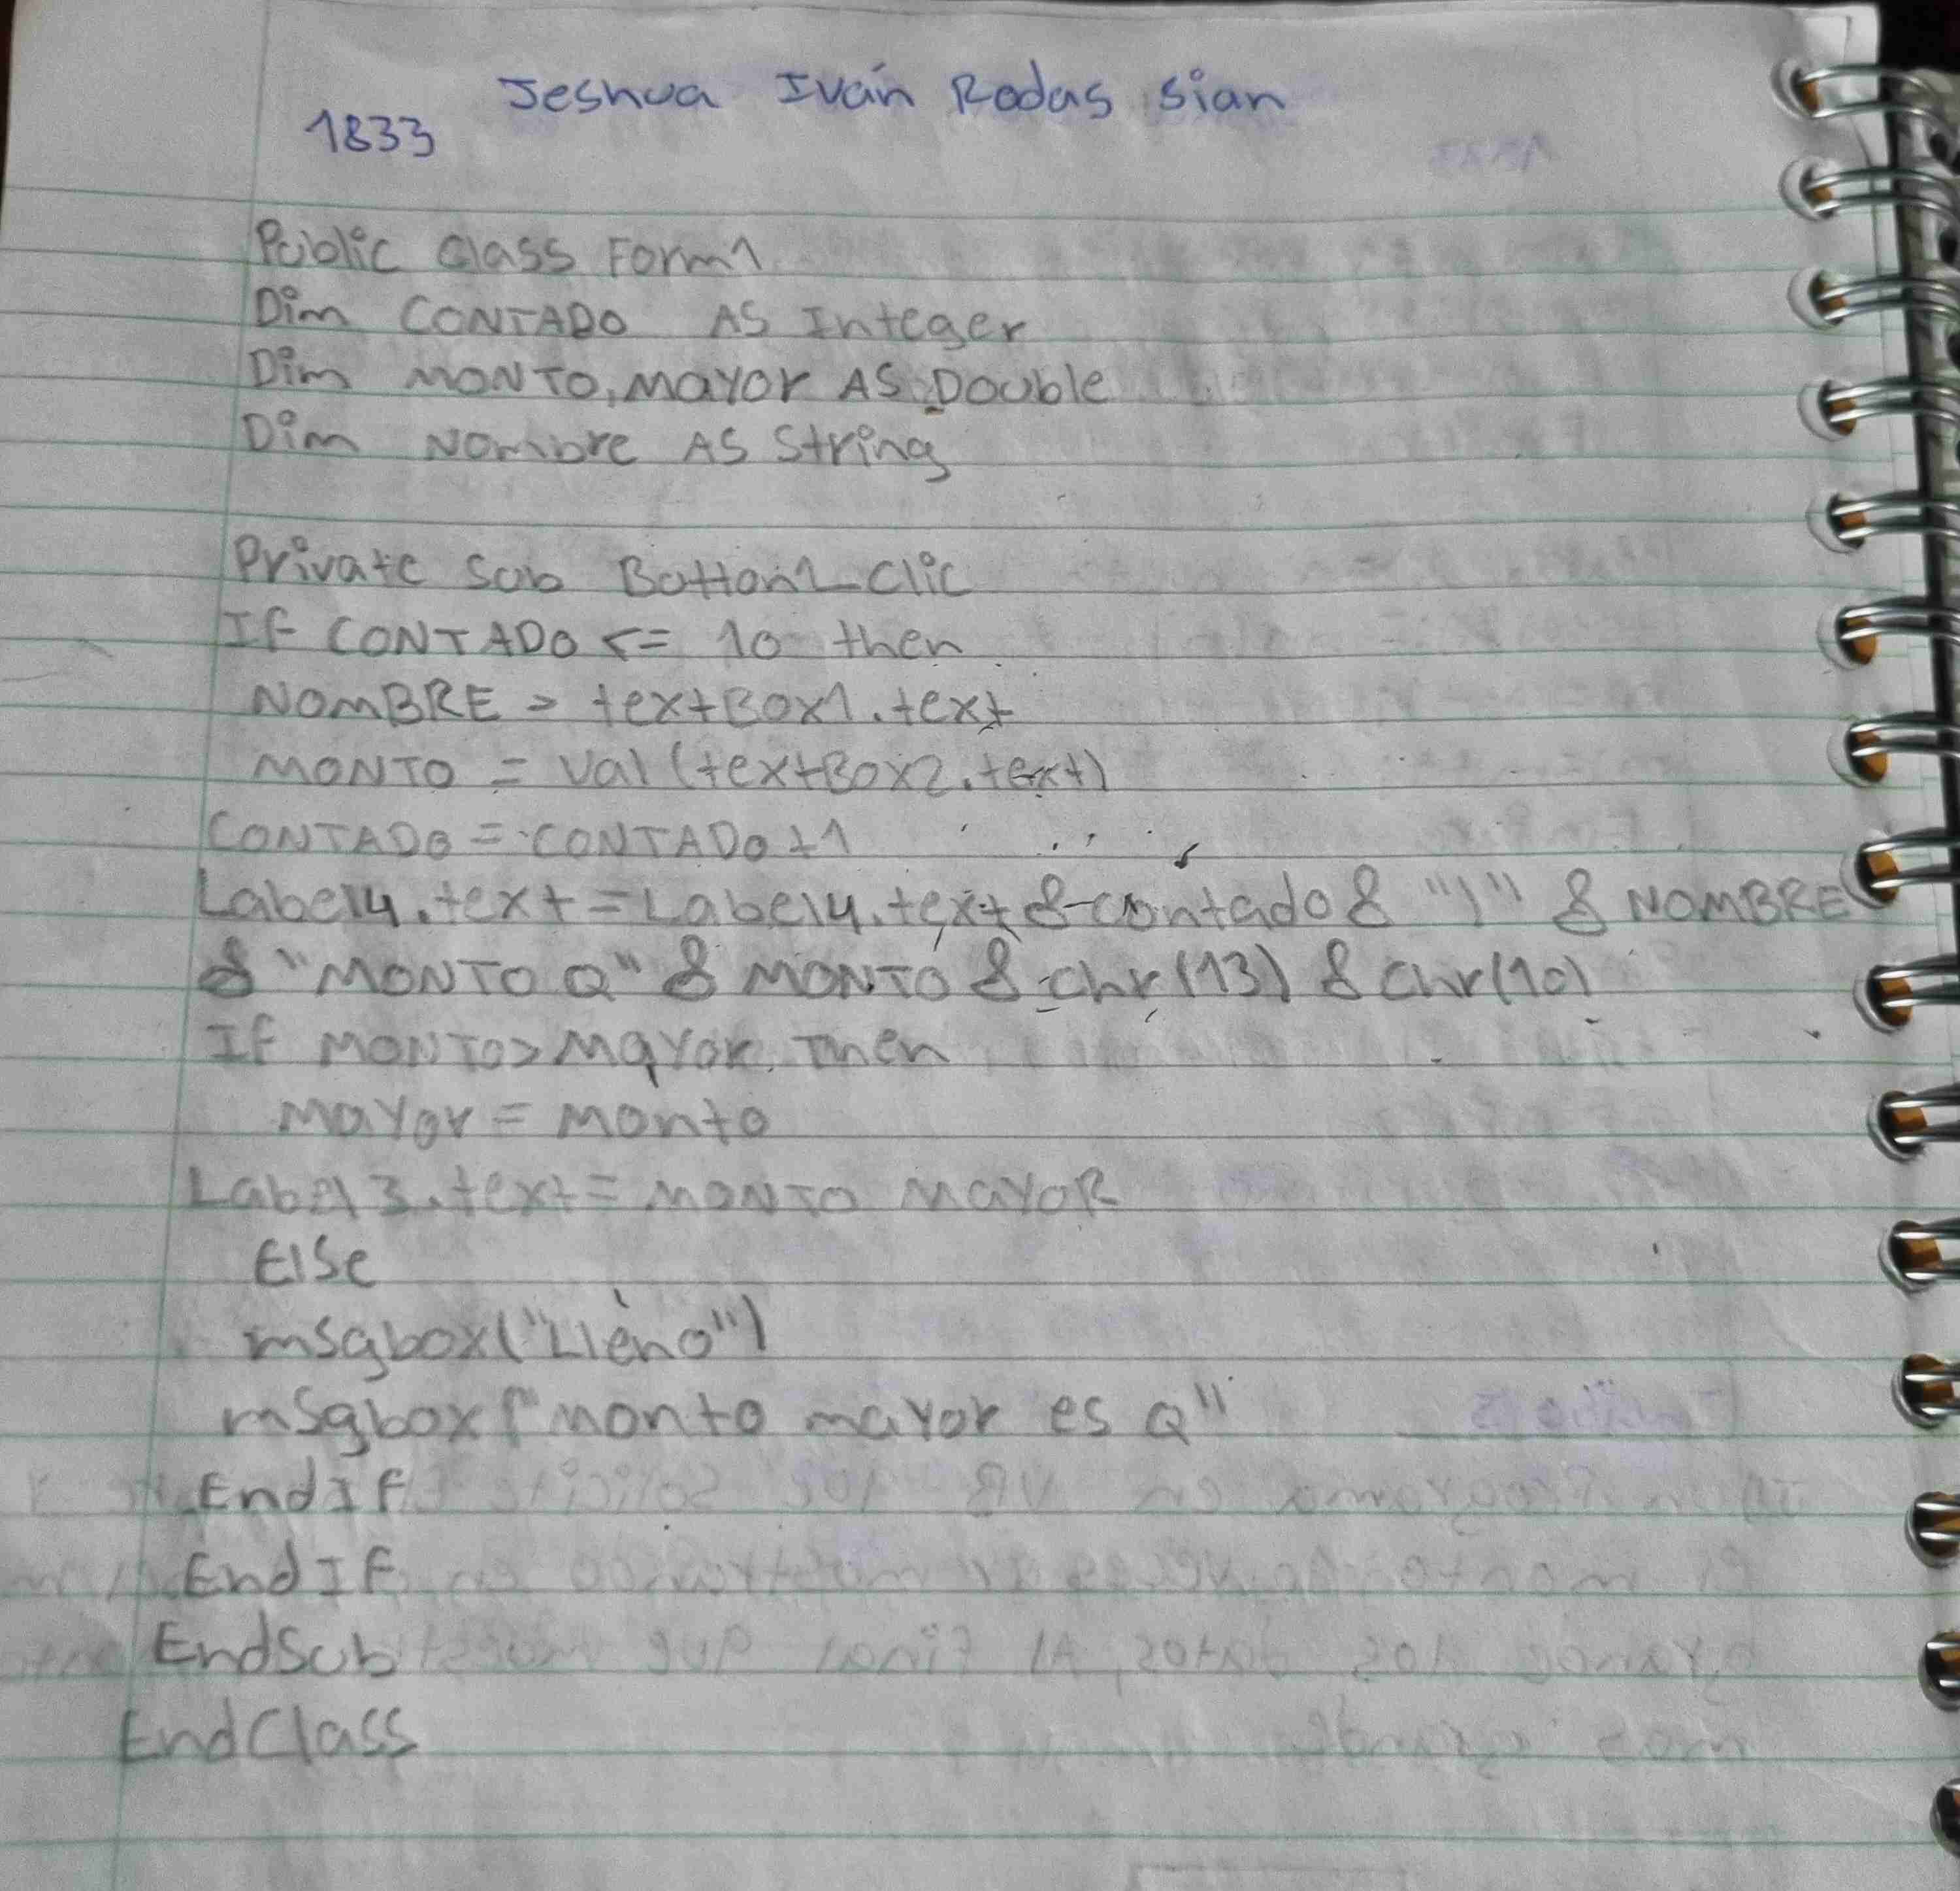 Jeshua Iván Rodas Sian
1833
Public Class Form1
Dim CONTADO AS Integer
Dim MONTO, MAYOR AS Double
Dim Nombre AS String
Private Sub Button1_Clic
If CONTADO <= 10 then
NOMBRE = textBox1.text
MONTO = Val(textBox2.text)
CONTADO = CONTADO + 1
Label4.text = Label4.text & contado & ")" & NOMBRE
& "MONTO Q" & MONTO & chr(13) & chr(10)
If MONTO > MAYOR Then
mayor = monto
Label3.text = MONTO MAYOR
Else
msgbox("Lleno")
msgbox("monto mayor es Q"
EndIf
EndIf
EndSub
EndClass